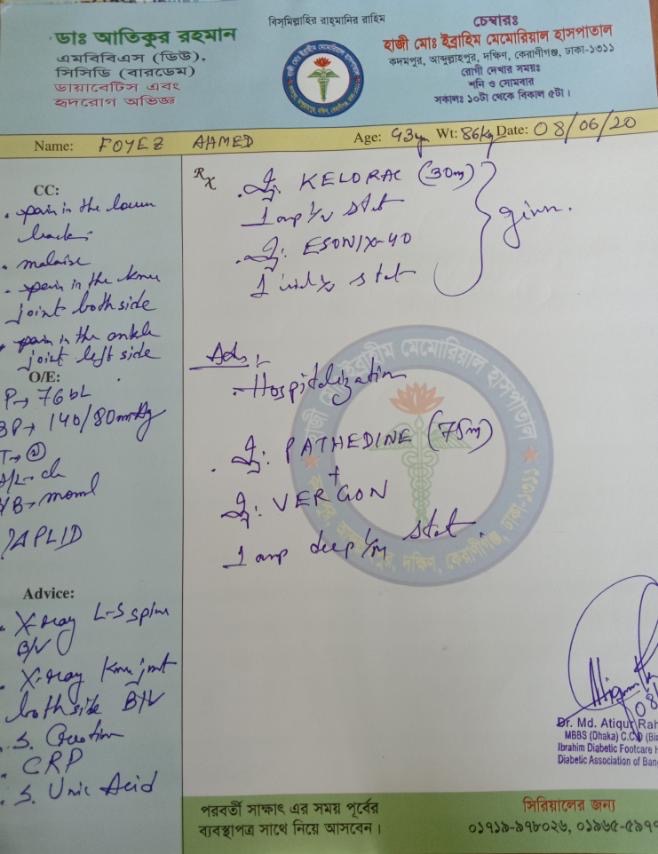 বিস্‌মিল্লাহির রাহ্‌মানির রাহিম
ডাঃ আতিকুর রহমান
এমবিবিএস (ডিউ),
সিসিডি (বারডেম)
ডায়াবেটিস এবং
হৃদরোগ অভিজ্ঞ
চেম্বারঃ
হাজী মোঃ ইব্রাহিম মেমোরিয়াল হাসপাতাল
কদমপুর, আব্দুল্লাহপুর, দক্ষিণ, কেরাণীগঞ্জ, ঢাকা-১৩১১
রোগী দেখার সময়ঃ
শনি ও সোমবার
সকালঃ ১০টা থেকে বিকাল ৫টা।
Name: FOYEZ AHMED Age: 43y Wt: 86kg Date: 08/06/20
CC:
• pain in the lower
back.
• malaise
• pain in the knee
joint both side
• pain in the ankle
joint left side
O/E:
P→ 76 b/
BP→ 140/80 mmHg
Advice:
• X-ray L-S spine
B/V
• X-ray knee joint
both side B/V
• S. Creatinine
• CRP
• S. Uric Acid
Rx
• Inj: KELORAC (30m)
1 amp stat
• Inj: ESONIX-40
1 stat
given.
Adv:
• Hospitalization
• Inj: PATHEDINE (75m)
+
Inj: VERGON
1 amp deep I/M stat
Dr. Md. Atiqur Rah
MBBS (Dhaka) C.C.D (Bi
Ibrahim Diabetic Footcare H
Diabetic Association of Ban
পরবর্তী সাক্ষাৎ এর সময় পূর্বের
ব্যবস্থাপত্র সাথে নিয়ে আসবেন।
সিরিয়ালের জন্য
০১৯১৯-৯৮০২৬, ০১৯৬৫-৫৯৭